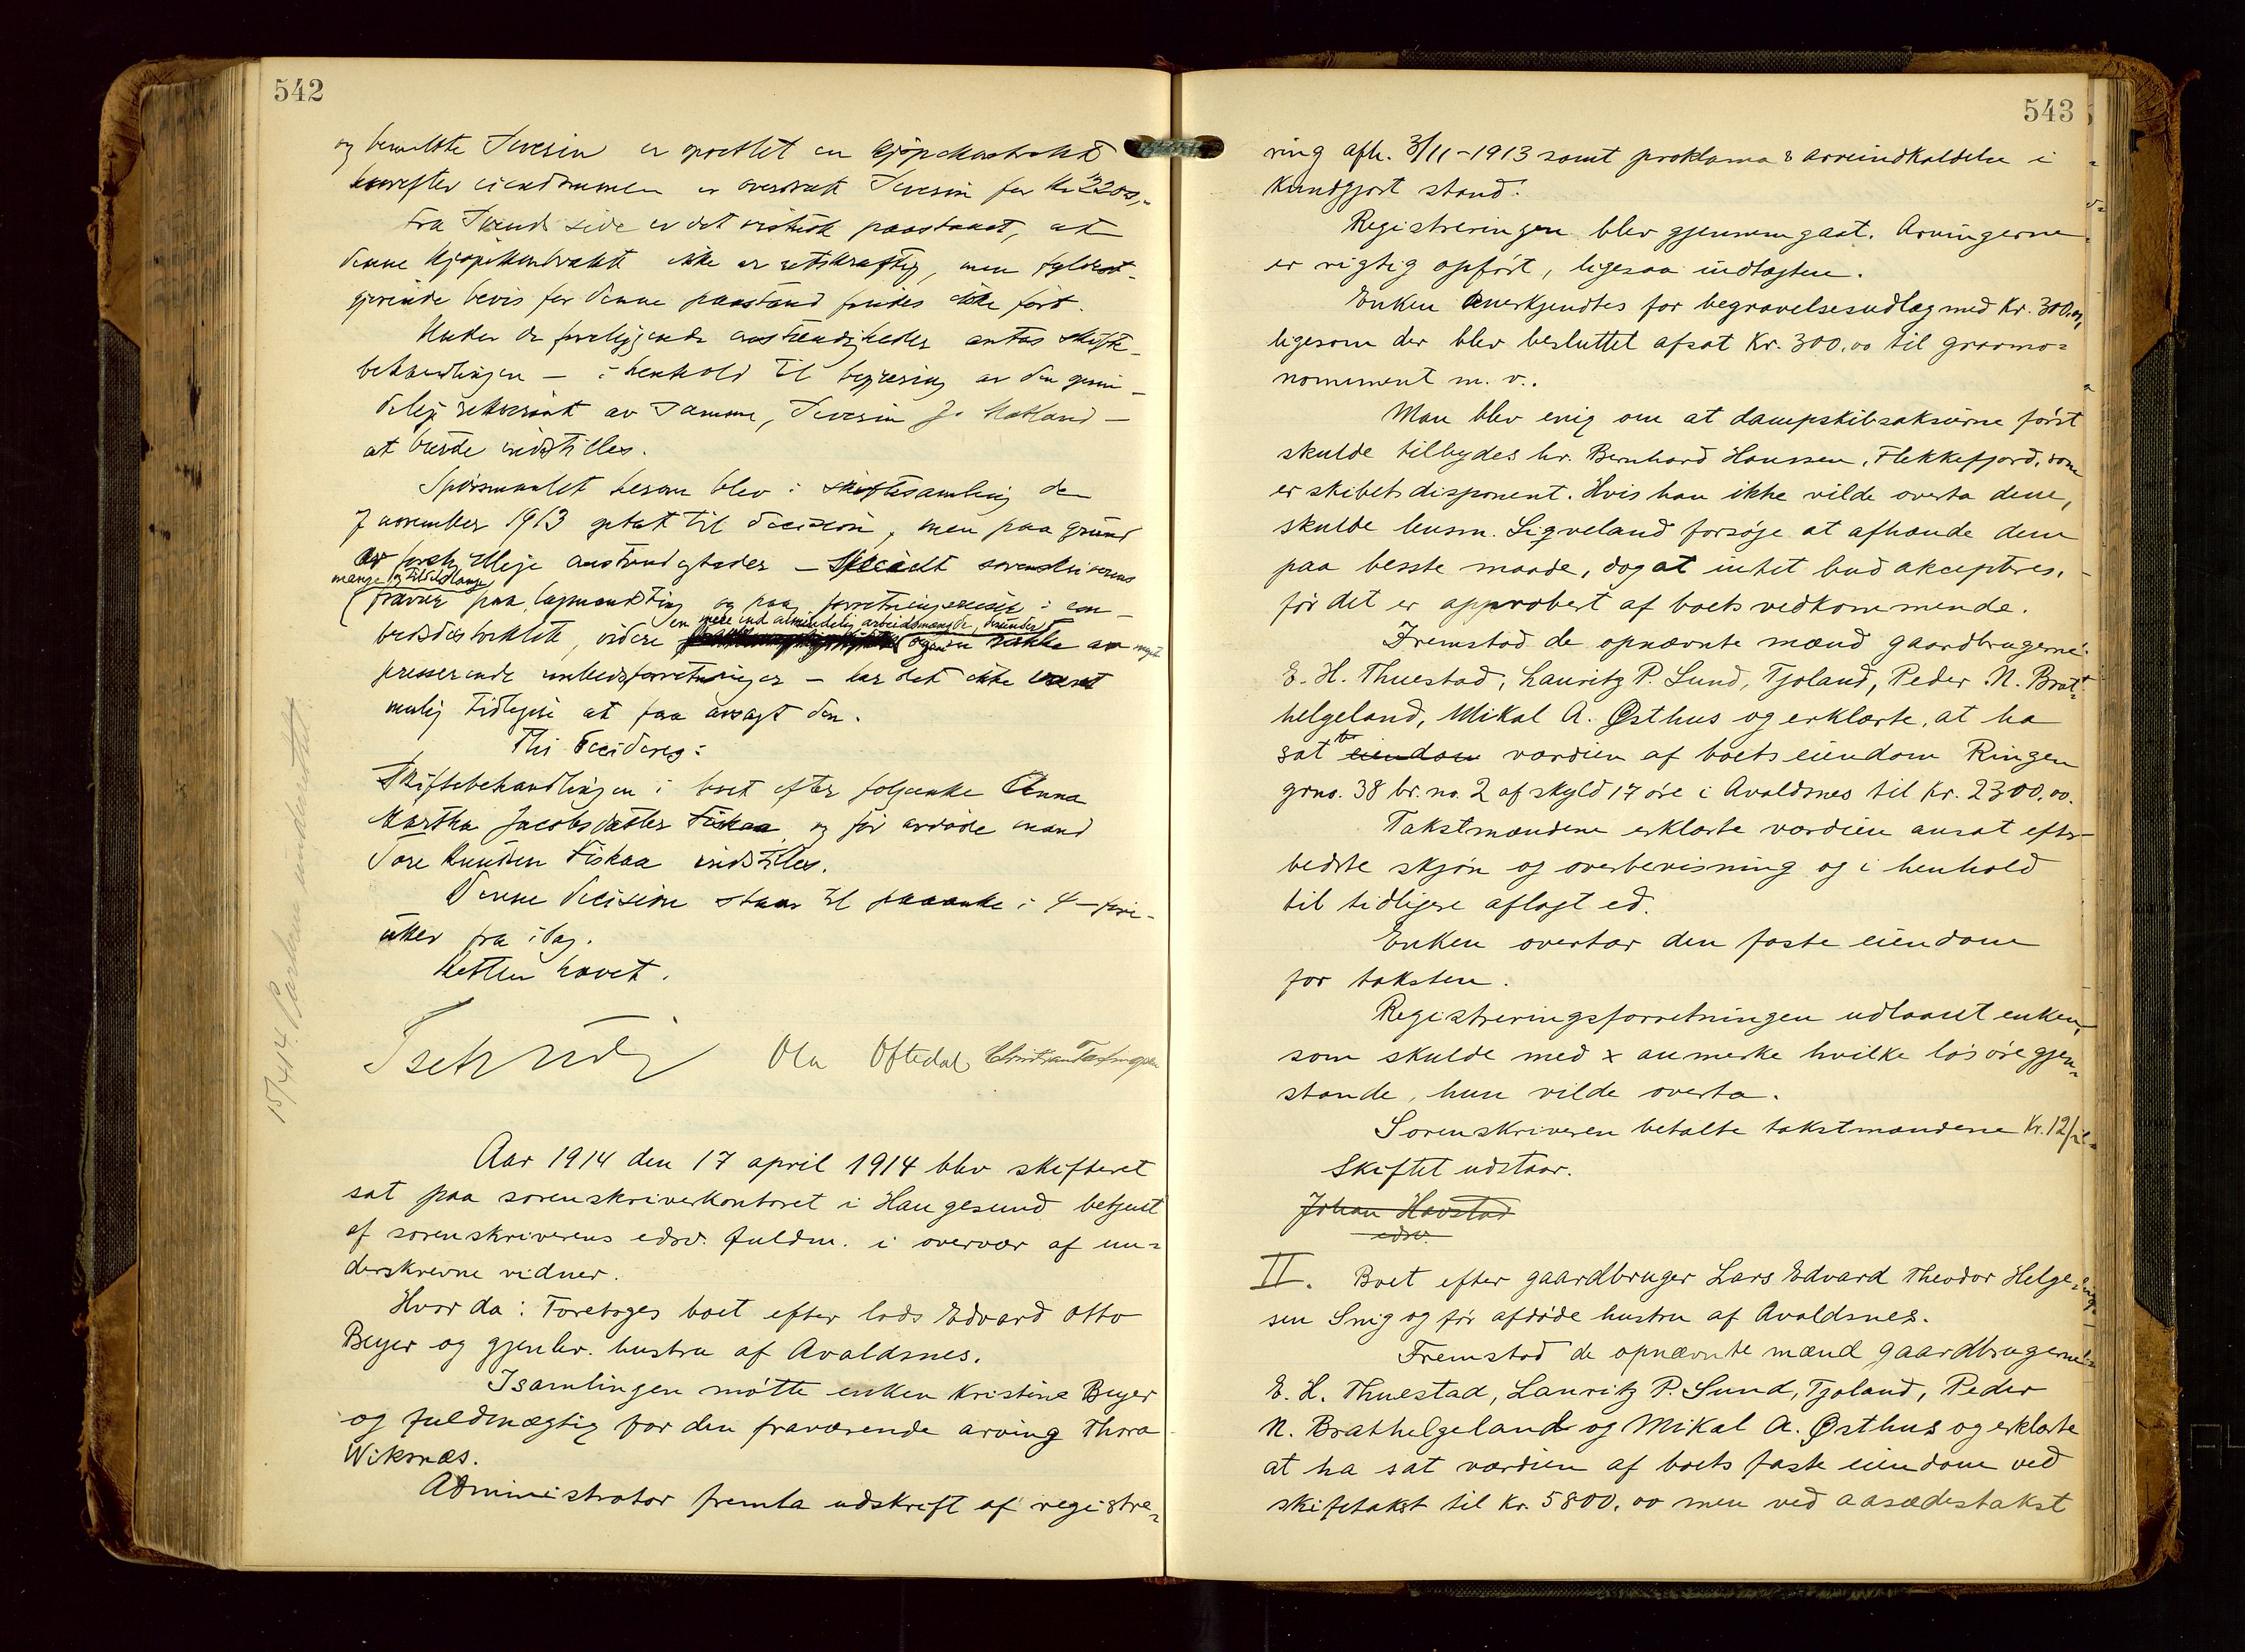 542
og bemeldte Severin er oprettet en kjøpekontrakt
hvorefter eiendommen er overdratt Severin for kr 2200,-
Fra Svends side er det vistnok paastaaet, at
denne kjøpekontrakt ikke er retskraftig, men fyldest-
gjørende bevis for denne paastand findes ikke ført.
Under de foreliggende omstændigheder antas skifte-
behandlingen - i henhold til begjæring av den
av samme, Severin J. Hatland -
at burde indstilles.
Spørsmaalet herom blev i skiftesamling den
7 november 1913 optat til decision, men paa grund
av forskjellige omstændigheder - specielt sorenskriverens
mange og tildels lange
fravær paa lagmandsting og paa forretningsreiser i em-
en mere end almindelig arbeidsmængde, derunder
bedsdistriktet, videre ogsaa en række av meget
presserende embedsforretninger - har det ikke været
mulig tidligere at faa avsagt den.
Thi decideres:
Skiftebehandlingen i boet efter følgeenke Anna
Martha Jacobsdatter Fiskaa og før avdøde mand
Tore Knudsen Fiskaa indstilles.
Denne decision staar til paaanke i 4 - fire -
uker fra idag.
Retten hævet.
Tschudi Ola Oftedal
15/4 14. Parterne underrettet.
Aar 1914 den 17 april 1914 blev skifteret
sat paa sorenskriverkontoret i Haugesund betjent
af sorenskriverens edsv. fuldm. i overvær af un=
derskrevne vidner.
Hvor da: Foretoges boet efter lods Edvard Otto
Beyer og gjenlev. hustru af Avaldsnes.
I samlingen møtte enken Kristine Beyer
og fuldmægtig for den fraværende arving Thora
Wiksnæs.
Administrator fremla udskrift af registre=
543
ring afh. 3/11-1913 samt proklama & arveindkaldelse i
kundgjort stand.
Registreringen blev gjennemgaat. Arvingerne
er rigtig opført, ligesaa indtægten.
Enken anerkjendtes for begravelsesudlæg med Kr. 300.00,
ligesom der blev besluttet afsat Kr. 300.00 til gravmo=
nomument m. v..
Man blev enig om at dampskibsaksierne først
skulde tilbydes hr. Bernhard Hanssen, Flekkefjord, som
er skibets disponent. Hvis han ikke vilde overta dem,
skulde lensm. Sigveland forsøge at afhænde dem
paa besste maade, dog at intet bud akcepteres,
før det er approbert af boets vedkommende.
Fremstod de opnævnte mænd gaardbrugerne
E. H. Thuestad, Lauritz P. Lund, Tjoland, Peder N. Brat=
helgeland, Mikal A. Østhus og erklærte, at ha
sat eiendom værdien af boets eiendom Ringen
grno. 38 br. no. 2 af skyld 17 øre i Avaldsnes til Kr. 2300.00.
Takstmændene erklærte værdien ansat efter
bedste skjøn og overbevisning og i henhold
til tidligere aflagt ed.
Enken overtar den faste eiendom
for taksten.
Registreringsforretningen udlaant enken,
som skulde med x anmerke hvilke løsøregjen=
stande, hun vilde overta.
Sorenskriveren betalte takstmændene Kr. 12/
Skiftet udstaar.
Johan Havstad
edsv.
II. Boet efter gaardbruger Lars Edvard Theodor Helge=
sen Snig og før afdøde hustru af Avaldsnes.
Fremstod de opnævnte mænd gaardbrugerne
E. H. Thuestad, Lauritz P. Lund, Tjoland, Peder
N. Brathelgeland og Mikal A. Østhus og erklærte
at ha sat værdien af boets faste eiendom ved
skiftetakst til kr. 5800.00 men ved aasædestakst